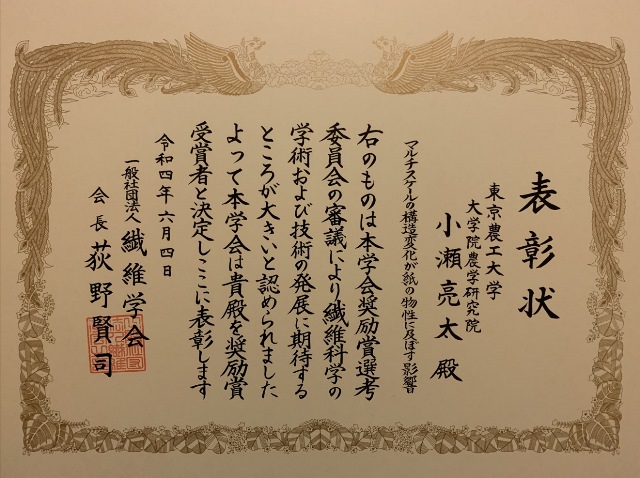 表彰状
東京農工大学
大学院農学研究院
小瀬亮太殿
マルチスケールの構造変化が紙の物性に及ぼす影響
右のものは本学会奨励賞選考
委員会の審議により繊維科学の
学術および技術の発展に期待する
ところが大きいと認められました
よって本学会は貴殿を奨励賞
受賞者と決定しここに表彰します
令和四年六月四日
一般社団法人 繊維学会
会長 荻野賢司